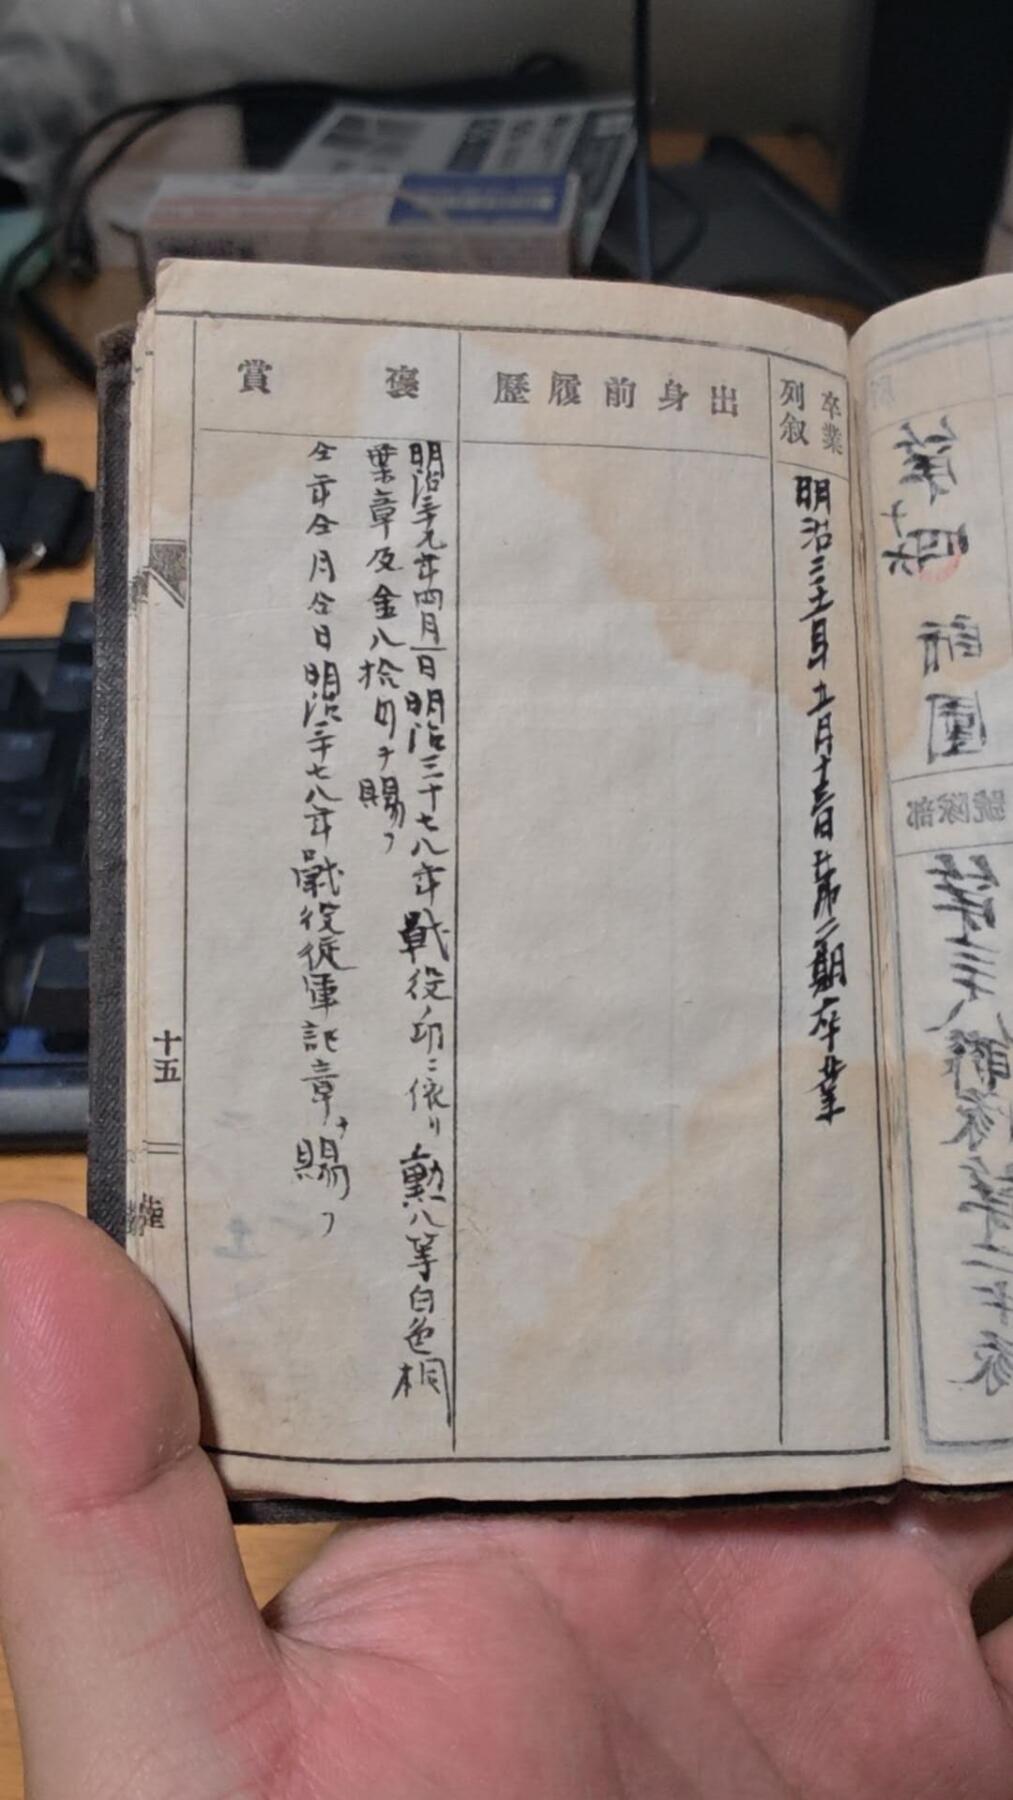 第十四師團
號隊部
卒業
列叙
明治三十一年五月十三日第二期卒業
出身前履歷
褒賞
明治三十九年四月一日明治三十七八年戰役ノ功ニ依リ勲八等白色桐
葉章及金八拾円ヲ賜フ
仝年仝月仝日明治三十七八年戰役從軍記章ヲ賜フ
十五